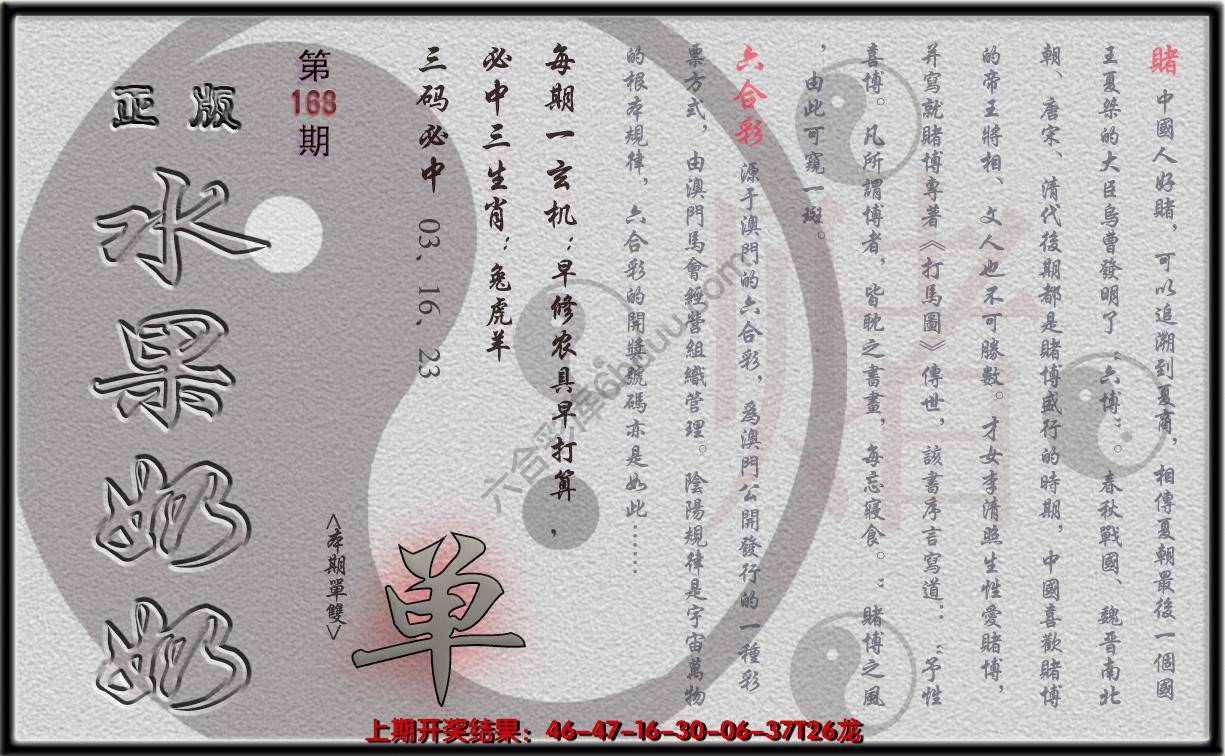 賭 中國人好賭，可以追溯到夏商，相傳夏朝最後一個國
王夏桀的大臣烏曹發明了“六博”。春秋戰國、魏晋南北
朝、唐宋、清代後期都是賭博盛行的時期，中國喜歡賭博
的帝王將相、文人也不可勝數。才女李清照生性愛賭博，
并寫就賭博專著《打馬圖》傳世，該書序言寫道：“予性
喜博。凡所謂博者，皆耽之書畫，每忘寢食。”賭博之風
，由此可窺一斑。
六合彩 源于澳門的六合彩，爲澳門公開發行的一種彩
票方式，由澳門馬會經營組織管理。陰陽規律是宇宙萬物
的根本規律，六合彩的開獎號碼亦是如此……
每期一玄机：早修农具早打算，
必中三生肖：兔虎羊
三码必中 03、16、23
第
168
期
正版
水果奶奶
<本期單雙>
单
上期开奖结果：46-47-16-30-06-37T26龙